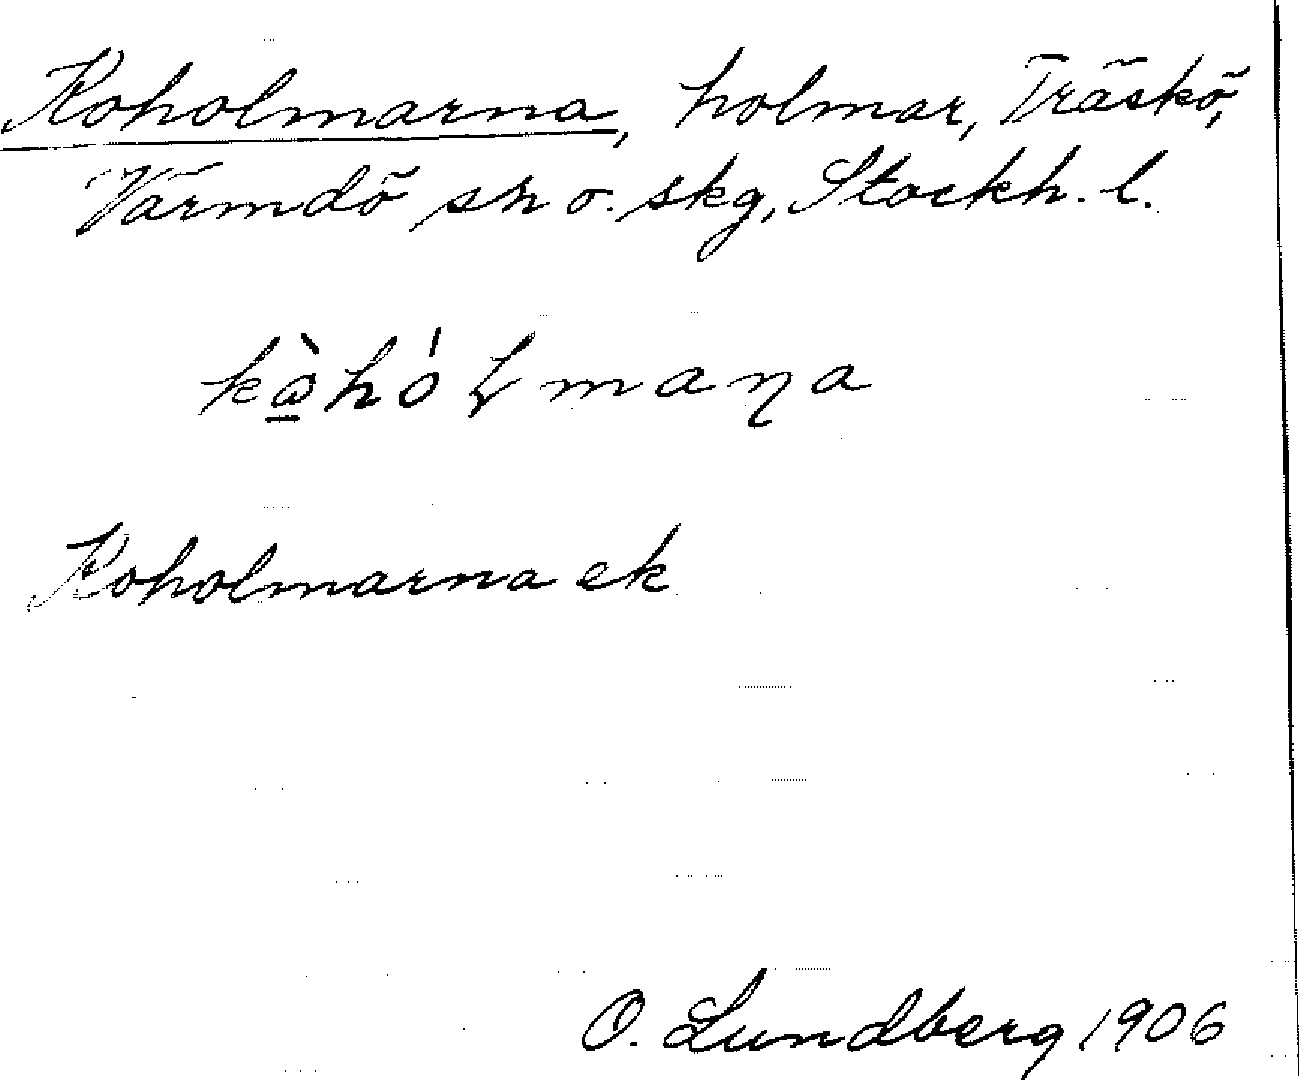 Koholmarna, holmar, Träskö,
Värmdö sn o. skg, Stockh. l.
kὼ̲hóɫmaɳa
Koholmarna ek
O. Lundberg 1906